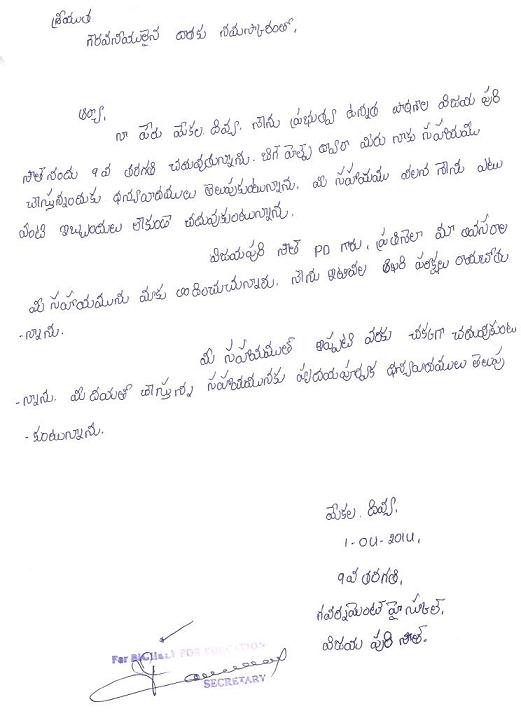 శ్రీయుత
గౌరవనీయులైన దాతకు నమస్కారంతో,
ఆర్యా,
నా పేరు మేకల. దివ్య. నేను ప్రభుత్వ ఉన్నత పాఠశాల విజయ పురి
సౌత్ నందు 9వ తరగతి చదువుతున్నాను. బిగ్ హెల్ప్ ద్వారా మీరు నాకు సహాయము
చేస్తున్నందుకు ధన్యవాదములు తెలుపుకుంటున్నాను. మీ సహాయము వలన నేను ఎటు
వంటి ఇబ్బందులు లేకుండా చదువుకుంటున్నాను.
విజయపురి సౌత్ PD గారు, ప్రతినెలా మా అవసరాల
మీ సహాయమును మాకు అందించుచున్నారు. నేను ఇటీవల పరీక్షలు రాయబోతు
-న్నాను.
మీ సహాయముతో ఇప్పటి వరకు చక్కగా చదువుకుంటు
-న్నాను. మీ దయతో చేస్తున్న సహాయమునకు హృదయపూర్వక ధన్యవాదములు తెలుపు
-కుంటున్నాను.
మేకల. దివ్య.
1-04-2014,
9వ తరగతి,
గవర్నమెంట్ హై స్కూల్,
విజయ పురి సౌత్.
For BIGHELP FOR EDUCATION
SECRETARY